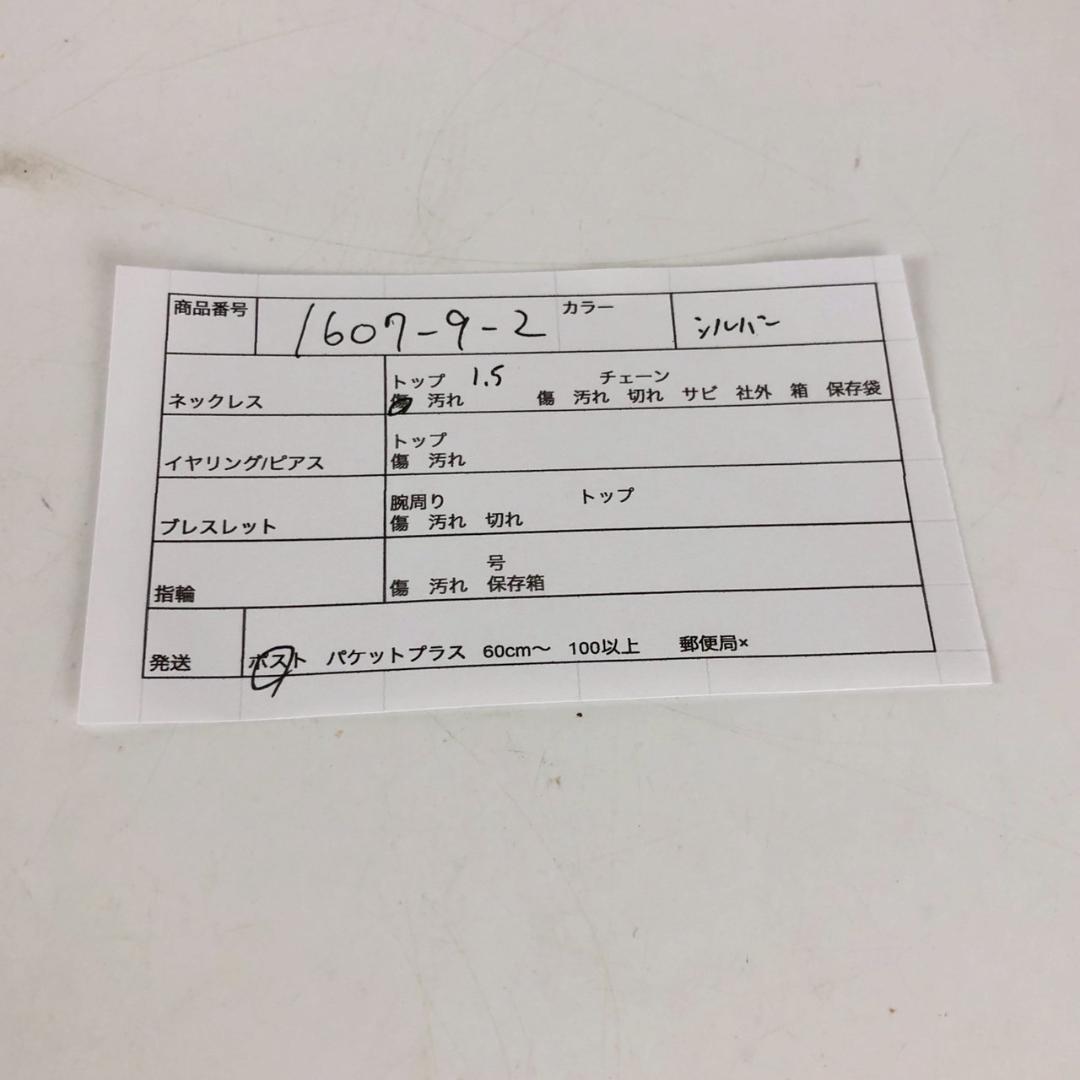 商品番号 1607-9-2 カラー シルバー
ネックレス トップ 1.5 チェーン
傷 汚れ 傷 汚れ 切れ サビ 社外 箱 保存袋
イヤリング/ピアス トップ
傷 汚れ
ブレスレット 腕周り トップ
傷 汚れ 切れ
指輪 号
傷 汚れ 保存箱
発送 ポスト パケットプラス 60cm～ 100以上 郵便局×